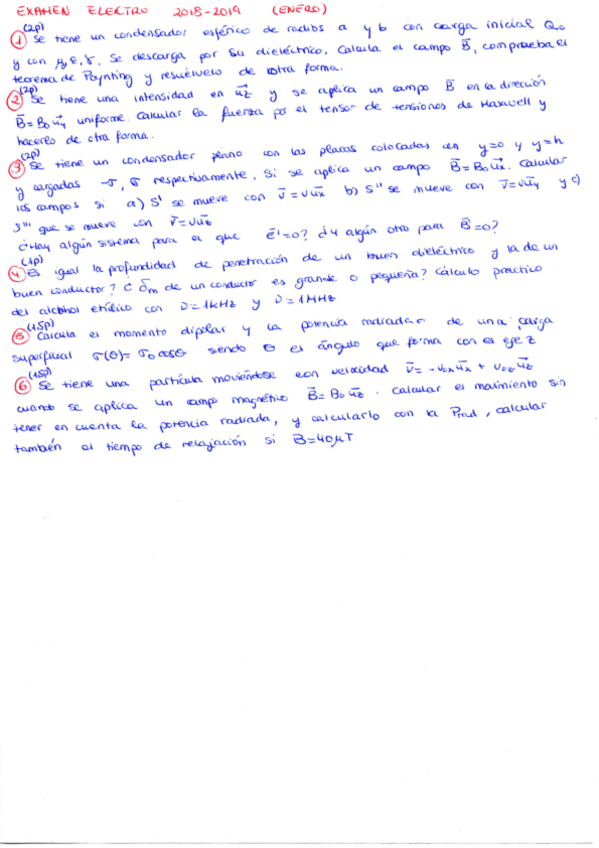 EXAMEN ELECTRO 2018-2019 (ENERO)
(2p)
① Se tiene un condensador esférico de radios a y b con carga inicial Q₀
y con μ, ε, γ. Se descarga por su dieléctrico. Calcula el campo B⃗, comprueba el
teorema de Poynting y resuélvelo de otra forma.
(2p)
② Se tiene una intensidad en u⃗z y se aplica un campo B⃗ en la dirección
B⃗ = B₀ u⃗y uniforme. Calcular la fuerza por el tensor de tensiones de Maxwell y
hacerlo de otra forma.
(2p)
③ Se tiene un condensador plano con las placas colocadas en y=0 y y=h
y cargadas -σ, σ respectivamente. Si se aplica un campo B⃗ = B₀ u⃗x. Calcular
los campos si a) S' se mueve con v⃗ = v u⃗x b) S'' se mueve con v⃗ = v u⃗y y c)
S''' que se mueve con v⃗ = v u⃗z
¿Hay algún sistema para el que E⃗'=0? ¿Y algún otro para B⃗=0?
(1p)
④ Es igual la profundidad de penetración de un buen dieléctrico y la de un
buen conductor? ¿ δm de un conductor es grande o pequeña? Cálculo práctico
del alcohol etílico con ν = 1kHz y ν = 1MHz
(1,5p)
⑤ Calcula el momento dipolar y la potencia radiada de una carga
superficial σ(θ) = σ₀ cosθ siendo θ el ángulo que forma con el eje z
(1,5p)
⑥ Se tiene una partícula moviéndose con velocidad v⃗ = -v₀x u⃗x + v₀z u⃗z
cuando se aplica un campo magnético B⃗ = B₀ u⃗z. Calcular el movimiento sin
tener en cuenta la potencia radiada, y calcularlo con la Prad, calcular
también el tiempo de relajación si B = 40μT